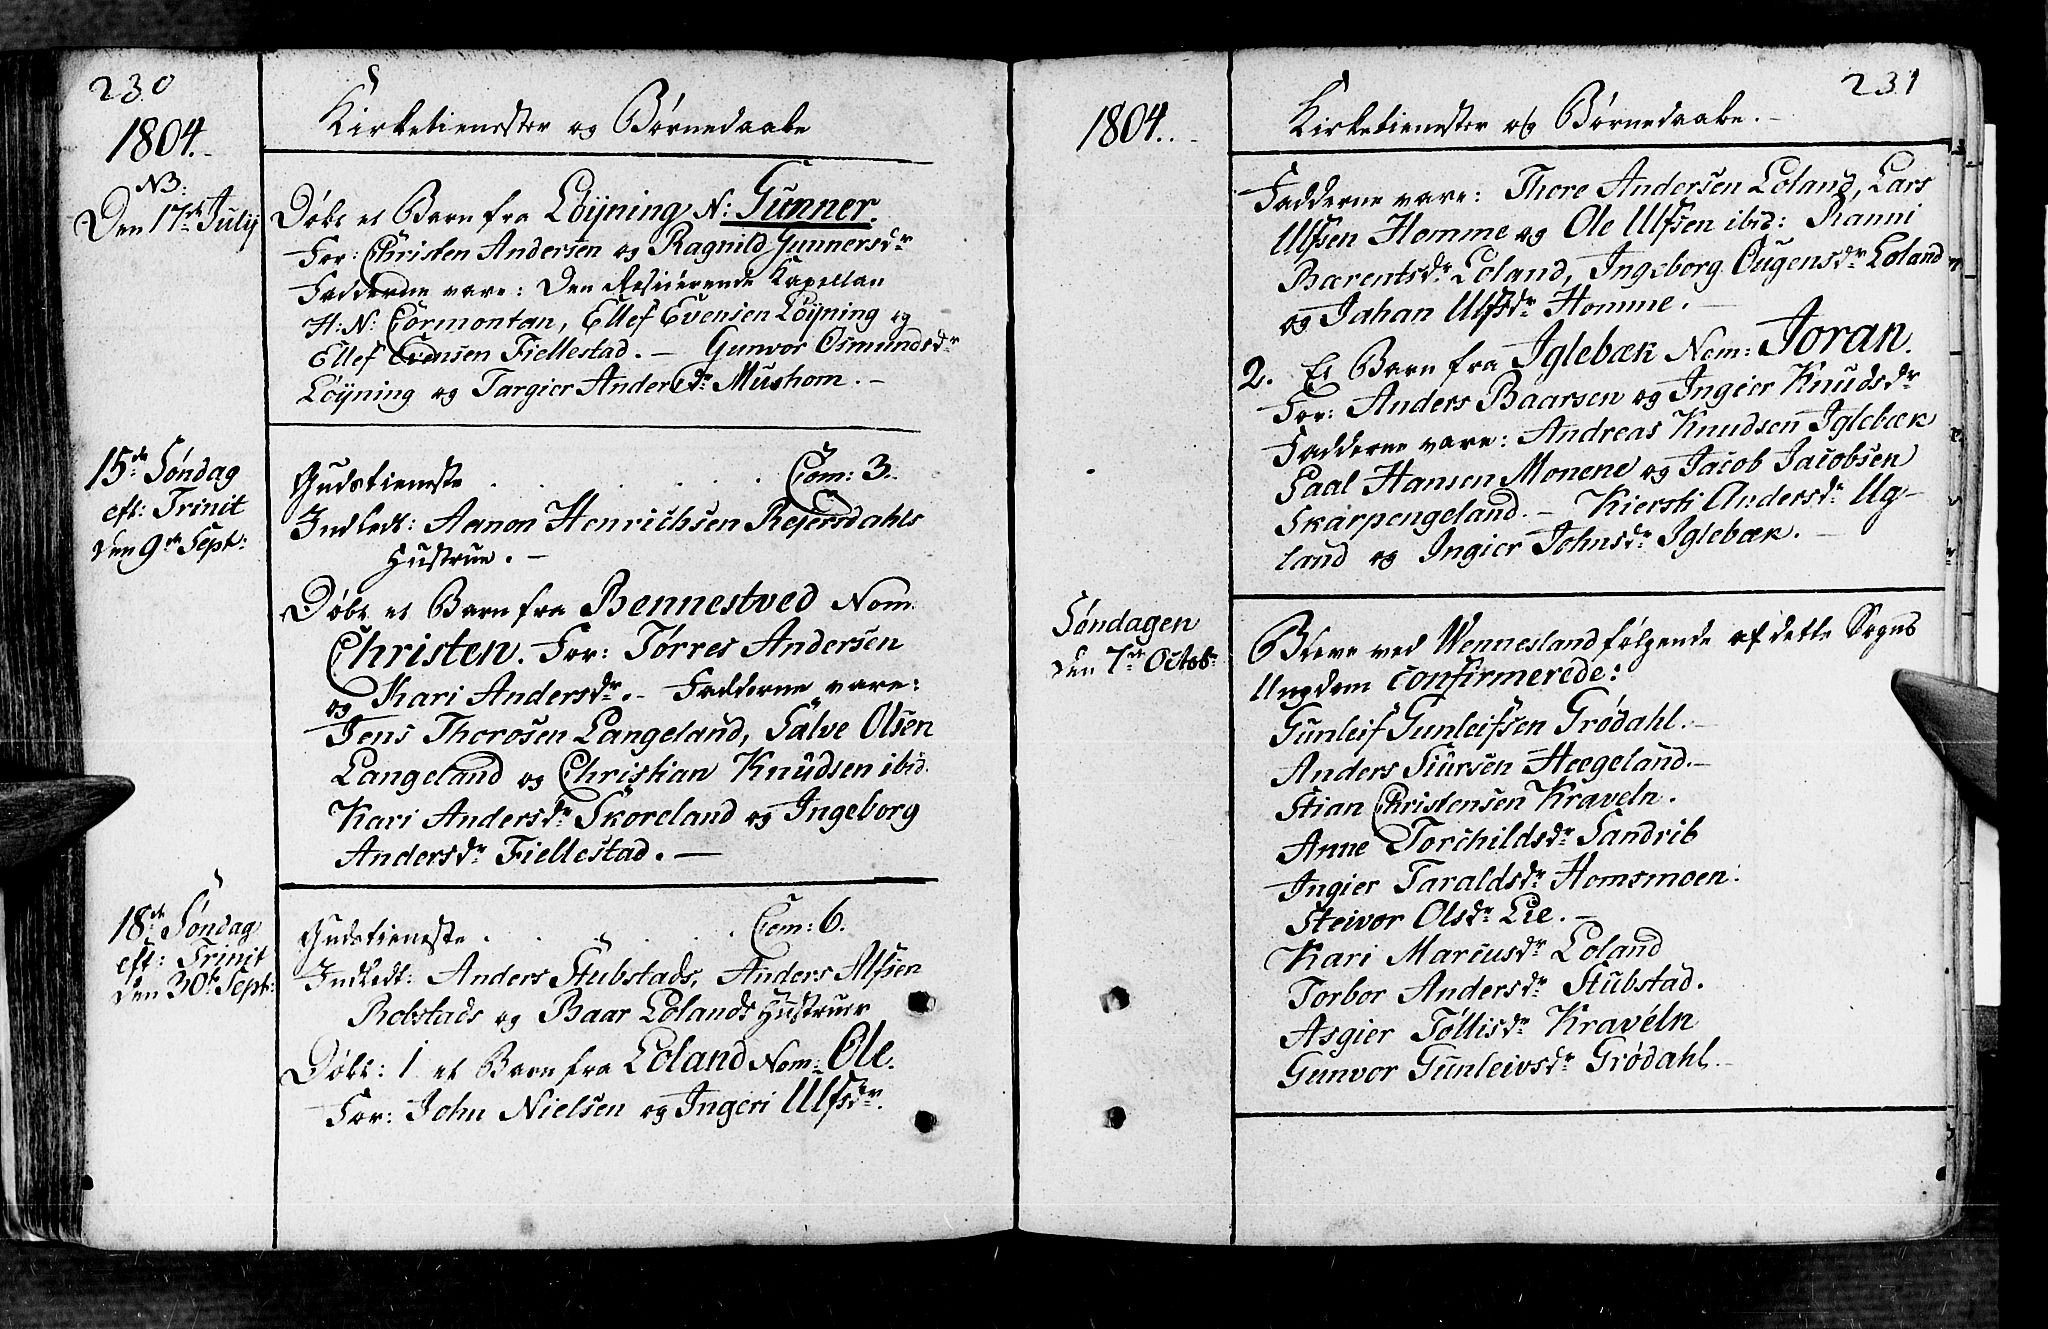 230
1804.
Kirketienester og Børnedaabe
NB:
Den 17de July
Døbt et Barn fra Löyning N: Gunner.
For: Christen Andersen og Ragnild Gunnersdr
Fadderne vare: Den Residerende Kapellan
H: N: Cormontan, Ellef Evensen Löyning og
Ellef Evensen Fiellestad. — Gunvor Osmundsdr
Löyning og Targier Andersdr Mushom. —
15de Søndag
eft: Trinit
den 9de Sept:
Gudstieneste . . . . . . Com: 3.
Indledt: Aanon Henrichsen Reiersdahls
Hustrue. —
Døbt et Barn fra Bennestved Nom.
Christen. For: Tørres Andersen
og Kari Andersdr. — Fadderne vare:
Jens Thorosen Langeland, Salve Olsen
Langeland og Christian Knudsen ibid.
Kari Andersdr Skoreland og Ingeborg
Andersdr Fiellestad. —
18de Søndag
eft: Trinit
den 30te Sept:
Gudstieneste . . . . . Com: 6.
Indledt: Anders Stubstads, Anders Alfsen
Robstads og Baar Lolands Hustruer
Døbt: 1 et Barn fra Loland Nom: Ole.
For: John Nielsen og Ingeri Ulfsdr.
231
1804.
Kirketienester og Børnedaabe. —
Fadderne vare: Thore Andersen Loland, Lars
Ulfsen Homme og Ole Ulfsen ibid: Ranni
Bærentsdr Loland, Ingeborg Ougensdr Loland
og Jahan Ulfsdr Homme. —
2. Et Barn fra Iglebæk Nom: Joran.
For: Anders Baarsen og Ingier Knudsdr
Fadderne vare: Andreas Knudsen Iglebæk
Paal Hansen Monene og Jacob Jacobsen
Skarpengeland. — Kiersti Andersdr Ug-
land og Ingier Johnsdr Iglebæk. —
Søndagen
den 7de Octob:
Bleve ved Wennesland følgende af dette Sogns
Ungdom confirmerede:
Gunleif Gunleifsen Grödahl. —
Anders Siursen Hægeland. —
Stian Christensen Kraveln.
Anne Torchildsdr Sandrib
Ingier Taraldsdr Homsmoen:
Steivor Olsdr Lie. —
Kari Marcusdr Loland
Torbor Andersdr Stubstad.
Asgier Töllisdr Kraveln
Gunvor Gunleivsdr Grødahl. —